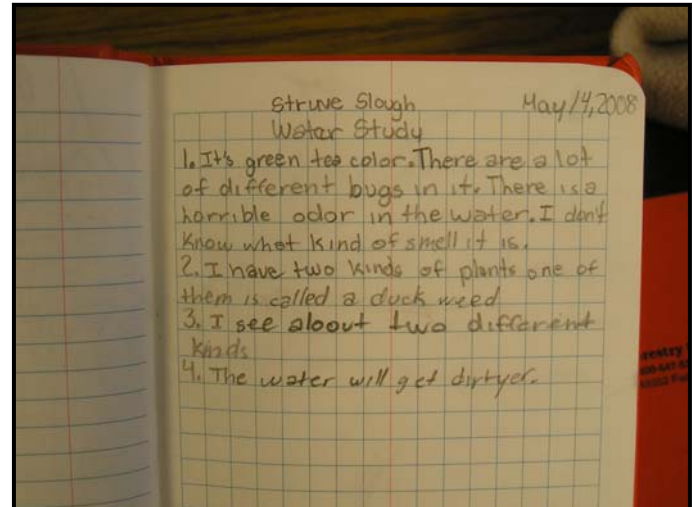 Struve Slough May 14, 2008
Water Study
1. It's green tea color. There are a lot
of different bugs in it. There is a
horrible odor in the water. I don't
know what kind of smell it is.
2. I have two kinds of plants one of
them is called a duck weed
3. I see aboout two different
kinds
4. The water will get dirtyer.